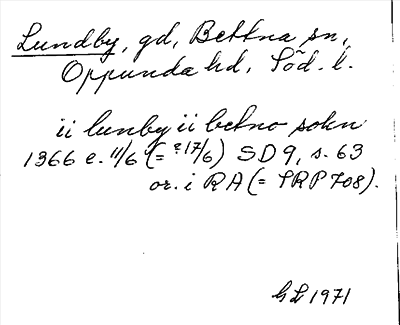 Lundby, gd, Bettna sn,
Oppunda hd, Söd. l.
ii lunby ii betno sokn
1366 e. 11/6 (= ? 17/6) SD 9, s. 63
or. i RA (= SRP 708).
GL 1971